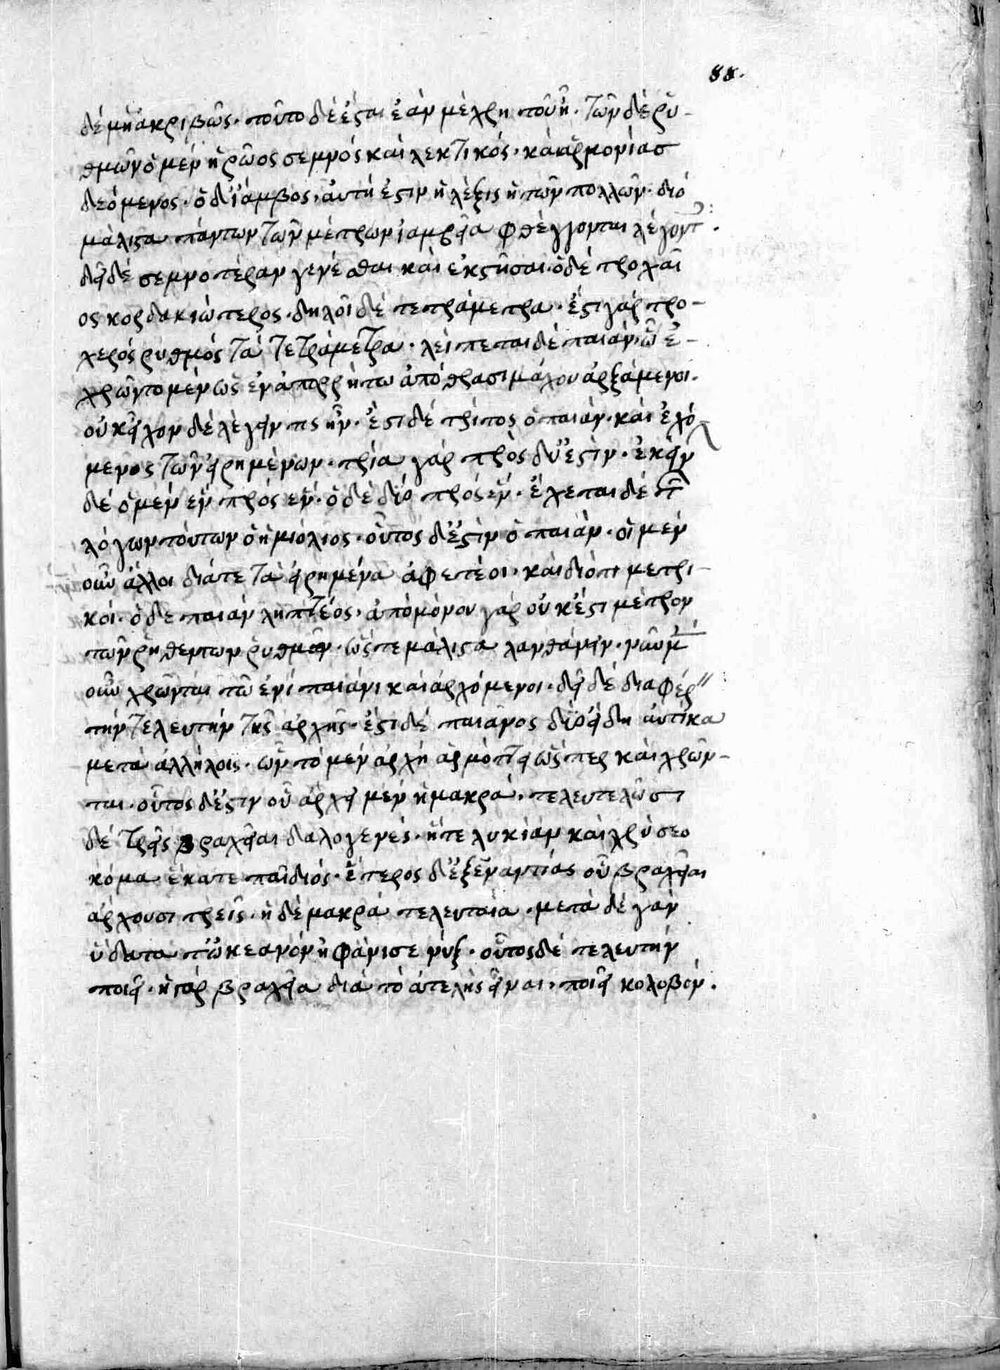 88.
δὲ μὴ ἀκριβῶς· τοῦτο δὲ ἔσται ἐὰν μέχρι του ᾖ· τῶν δὲ ῥυ-
θμῶν ὁ μὲν ἡρῶος σεμνός καὶ λεκτικός· καὶ ἁρμονίασ
δεόμενος· ὁ δ' ἴαμβος, αὐτή ἐστιν ἡ λέξις ἡ τῶν πολλῶν· διό
μάλιστα πάντων τῶν μέτρων ἰαμβεῖα φθέγγονται λέγοντ.
δεῖ δὲ σεμνοτέραν γενέσθαι καὶ ἐκστῆσαι· ὁ δὲ τροχαῖ
ος κορδακιώτερος· δηλοῖ δὲ τετράμετρα· ἔστι γάρ τρο-
χερός ρυθμός τὰ τετράμετρα· λείπεται δὲ παιάν· ᾧ ἐ-
χρῶντο μὲν ὡς ἐν ἀπορρήτω ἀπό θρασιμάχου ἀρξάμενοι.
οὐκ εἶχον δὲ λέγειν τίς ἦν· ἔστι δὲ τρίτος ὁ παιάν· καὶ ἐχό
μενος τῶν εἰρημένων· τρία γάρ πρὸς δύ' ἐστίν· ἐκείνων
δὲ ὁ μὲν ἕν πρός ἕν· ὁ δὲ δύο πρός ἕν· ἔχεται δὲ τῶν
λόγων τούτων ὁ ἡμιόλιος· οὗτος δ' ἐστίν ὁ παιάν· οἱ μὲν
οὖν ἄλλοι διά τε τὰ εἰρημένα ἀφετέοι· καὶ διότι μετρι
κοί· ὁ δὲ παιάν ληπτέος· ἀπό μόνου γάρ οὐκ ἔστι μέτρον
τῶν ῥηθέντων ῥυθμῶν· ὥστε μάλιστα λανθάνειν· νῦν μὲν
οὖν χρῶνται τῶ ἑνί παιάνι καὶ ἀρχόμενοι· δεῖ δὲ διαφέρ
τὴν τελευτήν τῆς ἀρχῆς· ἔστι δὲ παιᾶνος δύο εἴδη ἀντίκα
μετα ἀλλήλοις· ὧν τὸ μὲν ἀρχῆ ἁρμόττει ὥσπερ καὶ χρῶν-
ται· οὗτος δ' ἐστιν οὗ ἄρχει μὲν ἡ μακρά· τελευτελῶσι
δὲ τρεῖς βραχεῖαι δαλογενές· ἤτε λυκίαν καὶ χρύσεο
κόμα ἕκατε παῖ διός· ἕτερος δ' ἐξ ἐναντίας οὗ βραχεῖαι
ἄρχουσι τρεῖς· ἡ δὲ μακρά τελευταία· μετὰ δὲ γᾶν
ὕδατα τ' ὠκεανόν ἠφάνισε νύξ· οὗτος δὲ τελευτήν
ποιεῖ· ἡ γάρ βραχεῖα διά τὸ ἀτελής εἶναι, ποιεῖ κολοβόν.